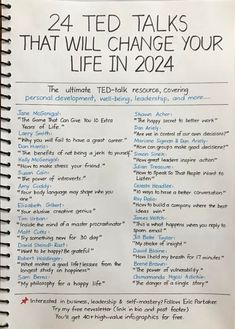 24 TED TALKS
THAT WILL CHANGE YOUR
LIFE IN 2024
The ultimate TED-talk resource, covering
personal development, well-being, leadership, and more...
Jane McGonigal:
"The Game That Can Give You 10 Extra
Years of Life."
Larry Smith:
"Why you will fail to have a great career."
Dan Harris:
"The benefits of not being a jerk to yourself"
Kelly McGonigal:
"How to make stress your friend."
Susan Cain:
"The power of introverts."
Amy Cuddy:
"Your body language may shape who you
are."
Elizabeth Gilbert:
"Your elusive creative genius"
Tim Urban:
"Inside the mind of a master procrastinator"
Matt Cutts:
"Try something new for 30 day"
David Steindl-Rast:
"Want to be happy? Be grateful"
Robert Waldinger:
"What makes a good life? Lessons from the
longest study on happiness"
Sam Berns:
"My philosophy for a happy life"
Shawn Achor:
"The happy secret to better work"
Dan Ariely:
"Are we in control of our own decisions?"
Mariano Sigman & Dan Ariely:
"How can groups make good decisions?"
Simon Sinek:
"How great leaders inspire action"
Julian Treasure:
"How to Speak So That People Want to
Listen"
Celeste Headlee:
"10 ways to have a better conversation"
Ray Dalio:
"How to build a company where the best
ideas win"
James Veitch:
"This is what happens when you reply to
spam email"
Jill Bolte Taylor:
"My stroke of insight"
David Blaine:
"How I held my breath for 17 minutes"
Brené Brown:
"The power of vulnerability"
Chimamanda Ngozi Adichie:
"The danger of a single story"
Interested in business, leadership & self-mastery? Follow Eric Partaker.
Try my free newsletter (link in bio and post footer)
You'll get 40+ high-value infographics for free.